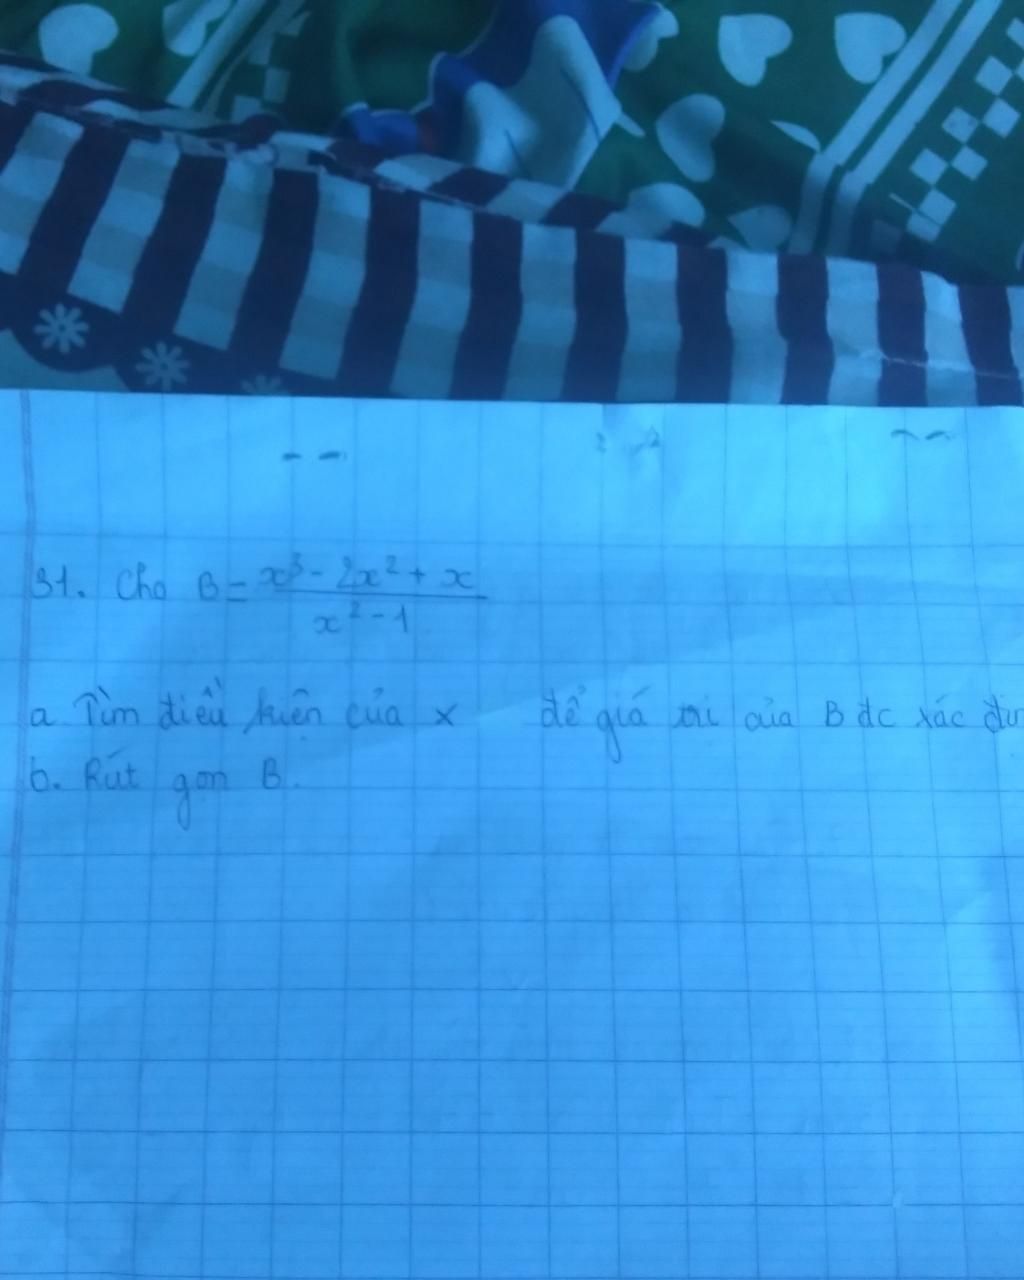 31. Cho B = \frac{x³ - 2x² + x}{x² - 1}
a Tìm điều kiện của x để giá trị của B đc xác
b. Rút gọn B.